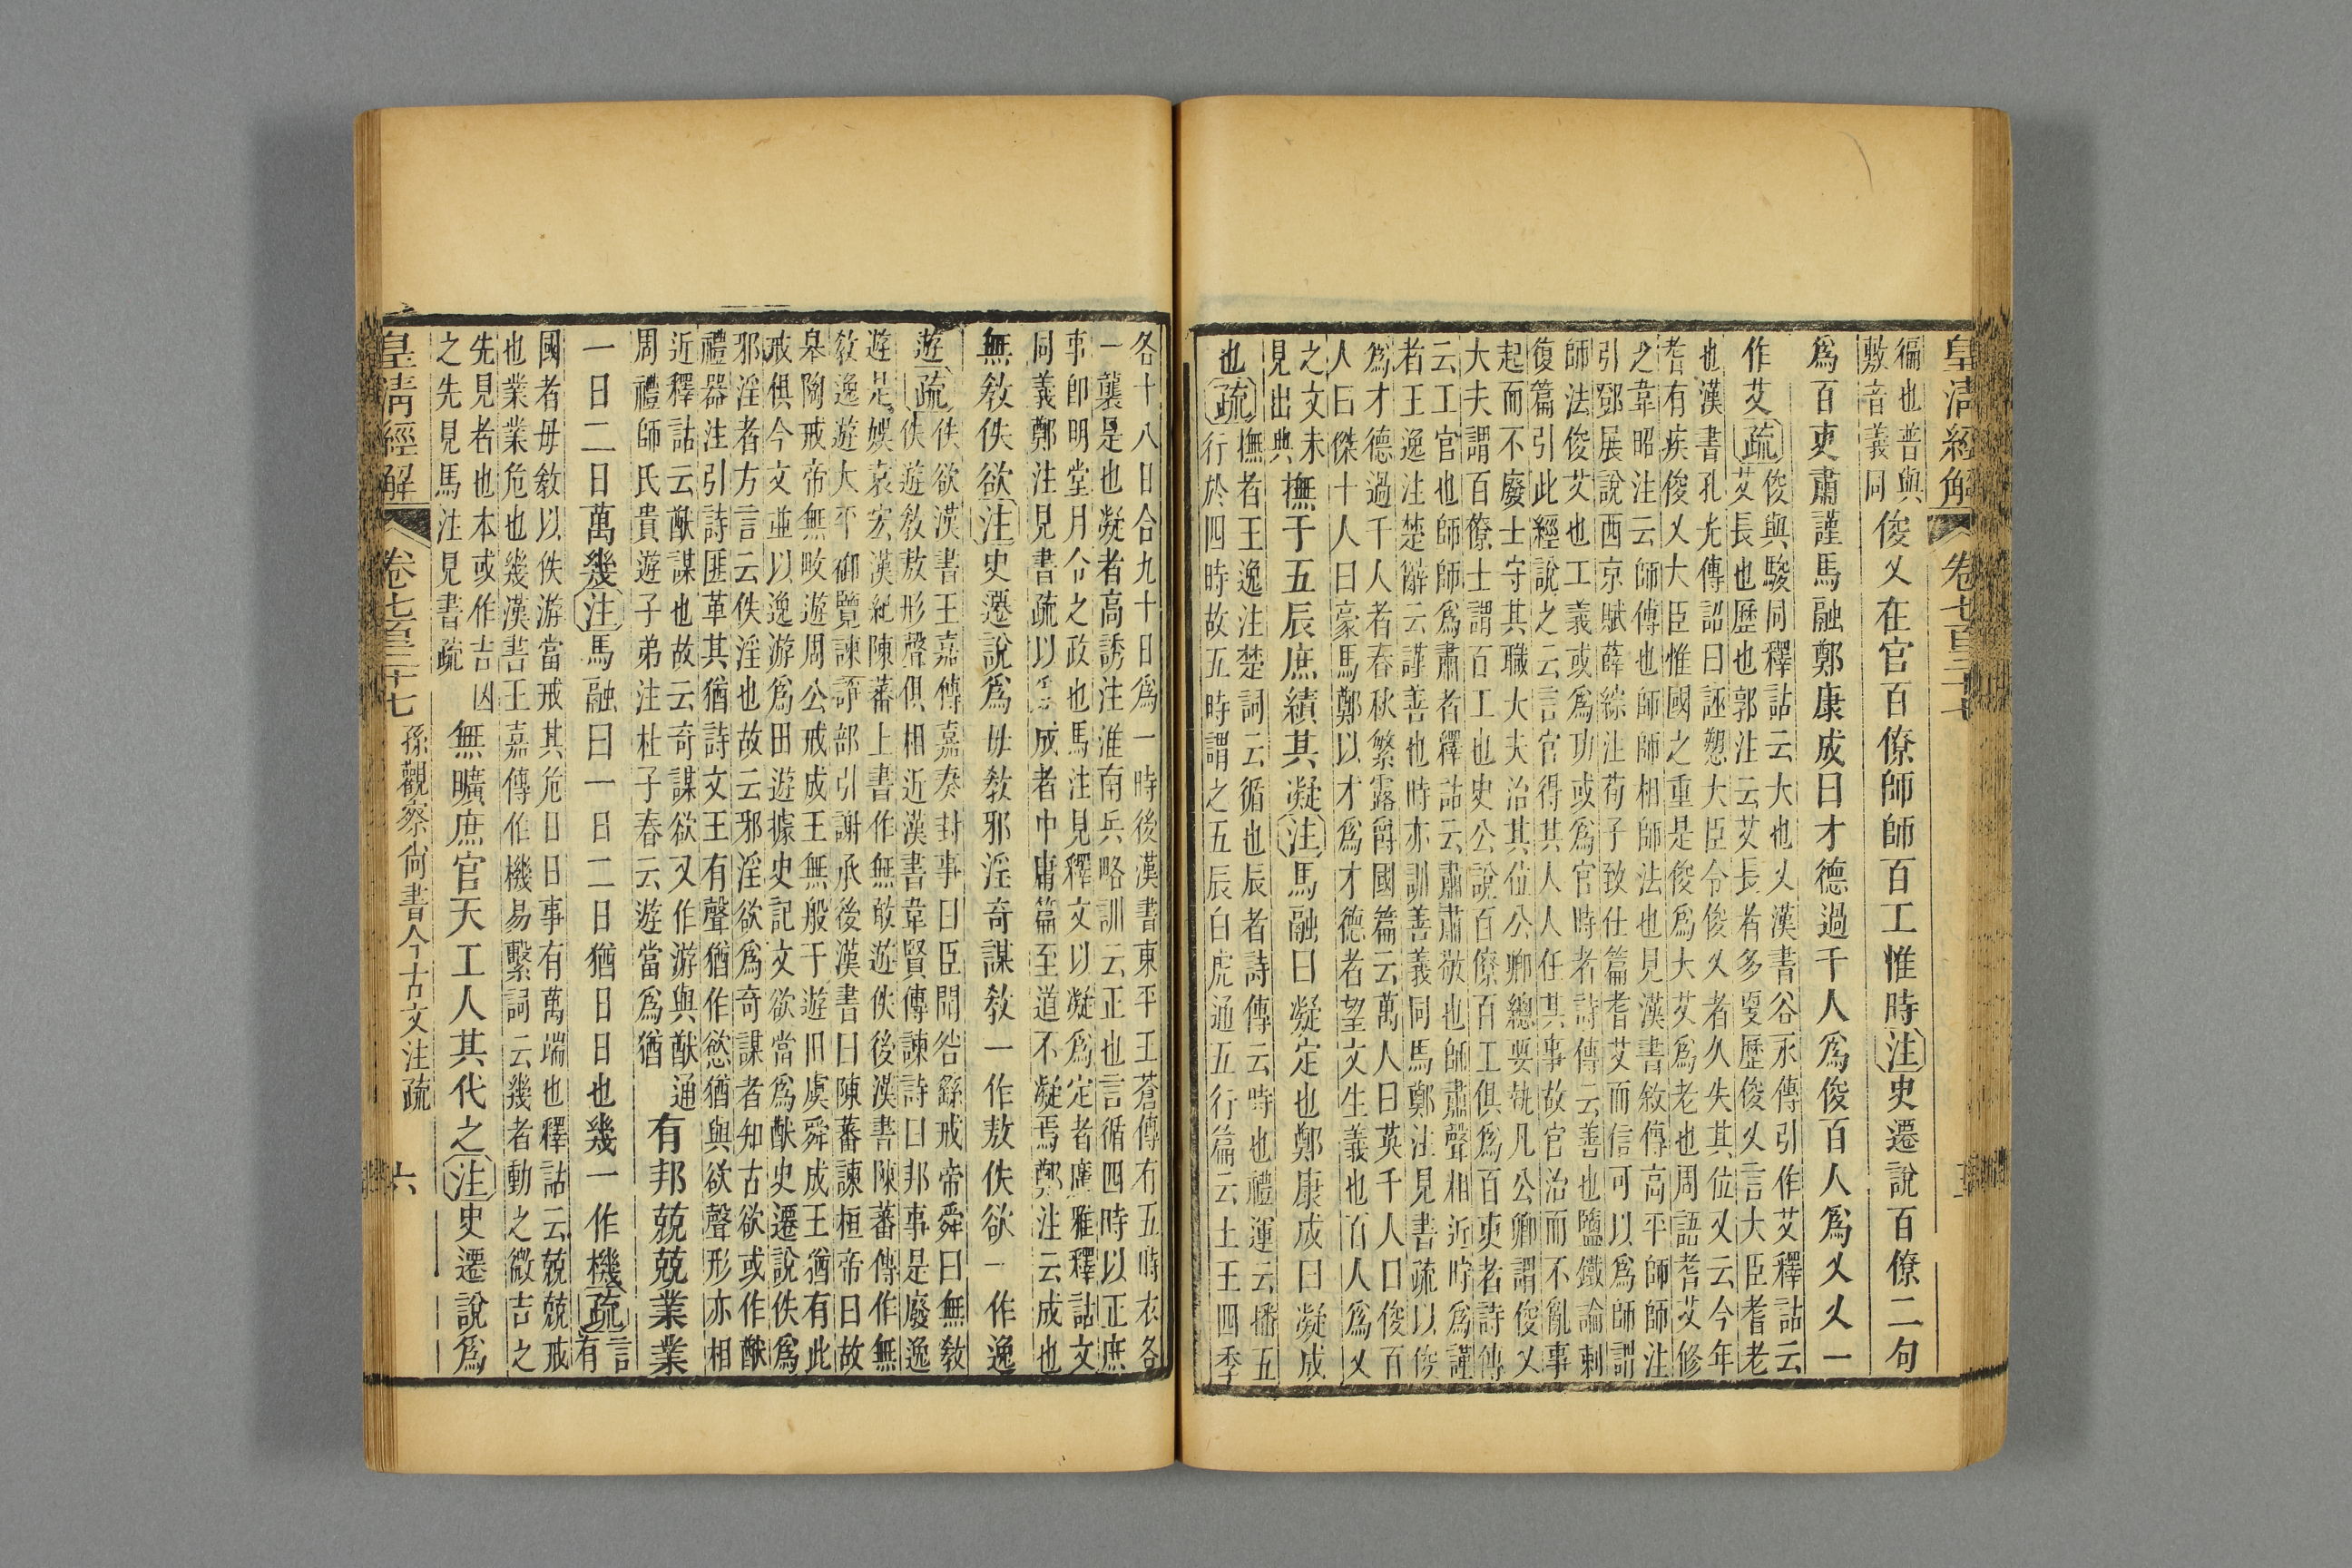 皇清經解 卷七百三十七
徧也普與
敷音義同
俊乂在官百僚師師百工惟時注史遷說百僚二句
爲百吏肅謹馬融鄭康成曰才德過千人爲俊百人爲乂乂一
作艾疏
俊與駿同釋詁云大也乂漢書谷永傳引作艾釋詁云
艾長也歷也郭注云艾長者多更歷俊乂言大臣耆老
也漢書孔光傳詔曰誣愬大臣令俊乂者久失其位又云今年
耆有疾俊乂大臣惟國之重是俊爲大艾爲老也周語耆艾修
之韋昭注云師傅也師師相師法也見漢書敘傳高平師師注
引鄧展說西京賦薛綜注荀子致仕篇耆艾而信可以爲師謂
師法俊艾也工義或爲功或爲官時者詩傳云善也鹽鐵論刺
復篇引此經說之云言官得其人人任其事故官治而不亂事
起而不廢士守其職大夫治其位公卿總要執凡公卿謂俊乂
大夫謂百僚士謂百工也史公說百僚百工俱爲百吏者詩傳
云工官也師師爲肅者釋詁云肅肅敬也師肅聲相近時爲謹
者王逸注楚辭云謹善也時亦訓善義同馬鄭注見書疏以俊
爲才德過千人者春秋繁露爵國篇云萬人曰英千人曰俊百
人曰傑十人曰豪馬鄭以才爲才德者望文生義也百人爲乂
之文未
見出典
撫于五辰庶績其凝注馬融曰凝定也鄭康成曰凝成
也疏
撫者王逸注楚詞云循也辰者詩傳云時也禮運云播五
行於四時故五時謂之五辰白虎通五行篇云土王四季
各十八日合九十日爲一時後漢書東平王蒼傳有五時衣各
一襲是也凝者高誘注淮南兵略訓云正也言循四時以正庶
事卽明堂月令之政也馬注見釋文以凝爲定者廣雅釋詁文
同義鄭注見書疏以成者中庸篇至道不凝焉鄭注云成也
無敎佚欲注史遷說爲毋敎邪淫奇謀敎一作敖佚欲一作逸
遊疏
佚欲漢書王嘉傳嘉奏封事曰臣聞咎繇戒帝舜曰無敎
佚遊敎敖形聲俱相近漢書韋賢傳諫詩曰邦事是廢逸
遊是娛袁宏漢紀陳蕃上書作無敢遊佚後漢書陳蕃傳作無
敎逸遊大平御覽諫諍部引謝承後漢書曰陳蕃諫桓帝曰故
皋陶戒帝無敢遊周公戒成王無般于遊旧虞舜成王猶有此
戒俱今文並以逸游爲田遊據史記文欲當爲猷史遷說佚爲
邪淫者方言云佚淫也故云邪淫欲爲奇謀者知古欲或作猷
禮器注引詩匪革其猶詩文王有聲猶作慾猶與欲聲形亦相
近釋詁云猷謀也故云奇謀欲又作游與猷通
周禮師氏貴遊子弟注杜子春云遊當爲猶
有邦兢兢業業
一日二日萬幾注馬融曰一日二日猶日日也幾一作機疏
言
有
國者毋敎以佚游當戒其危日日事有萬端也釋詁云兢兢戒
也業業危也幾漢書王嘉傳作機易繫詞云幾者動之微吉之
先見者也本或作吉凶
之先見馬注見書疏
無曠庶官天工人其代之注史遷說爲
皇清經解 卷七百三十七 孫觀察尚書今古文注疏 六